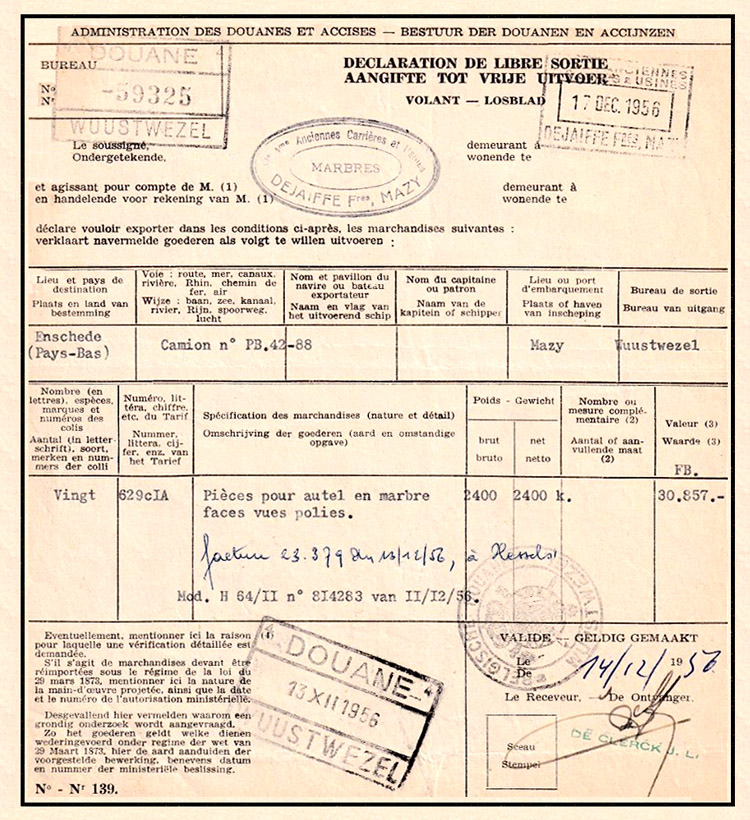 ADMINISTRATION DES DOUANES ET ACCISES — BESTUUR DER DOUANEN EN ACCIJNZEN
BUREAU
DOUANE
Nº
Nr
-59325
WUUSTWEZEL
DECLARATION DE LIBRE SORTIE
AANGIFTE TOT VRIJE UITVOER
VOLANT — LOSBLAD
17 DEC. 1956
DEJAIFFE Fres, MAZY
Le soussigné,
Ondergetekende,
Anciennes Carrières et Usines
MARBRES
DEJAIFFE Fres, MAZY
demeurant à
wonende te
et agissant pour compte de M. (1)
en handelende voor rekening van M. (1)
demeurant à
wonende te
déclare vouloir exporter dans les conditions ci-après, les marchandises suivantes :
verklaart navermelde goederen als volgt te willen uitvoeren :
Lieu et pays de
destination
Plaats en land van
bestemming
Voie : route, mer, canaux,
rivière, Rhin, chemin de
fer, air
Wijze : baan, zee, kanaal,
rivier, Rijn, spoorweg,
lucht
Nom et pavillon du
navire ou bateau
exportateur
Naam en vlag van
het uitvoerend schip
Nom du capitaine
ou patron
Naam van de
kapitein of schipper
Lieu ou port
d'embarquement
Plaats of haven
van inscheping
Bureau de sortie
Bureau van uitgang
Enschede
(Pays-Bas)
Camion n° PB.42-88
Mazy
Wuustwezel
Nombre (en
lettres), espèces,
marques et
numéros des
colis
Aantal (in letter-
schrift), soort,
merken en num-
mers der colli
Numéro, lit-
téra, chiffre,
etc. du Tarif
Nummer,
littera, cij-
fer, enz. van
het Tarief
Spécification des marchandises (nature et détail)
Omschrijving der goederen (aard en omstandige
opgave)
Poids - Gewicht
brut
bruto
net
netto
Nombre ou
mesure complé-
mentaire (2)
Aantal of aan-
vullende maat
(2)
Valeur (3)
Waarde (3)
FB.
Vingt
629cIA
Pièces pour autel en marbre
faces vues polies.
2400
2400 k.
30.857.-
facture 23.379 du 13/12/56, à Hessels
Mod. H 64/II n° 814283 van II/I2/56.
Eventuellement, mentionner ici la raison
pour laquelle une vérification détaillée est
demandée.
S'il s'agit de marchandises devant être
réimportées sous le régime de la loi du
29 mars 1873, mentionner ici la nature de
la main-d'œuvre projetée, ainsi que la date
et le numéro de l'autorisation ministérielle.
Desgevallend hier vermelden waarom een
grondig onderzoek wordt aangevraagd.
Zo het goederen geldt welke dienen
wederingevoerd onder regime der wet van
29 Maart 1873, hier de aard aanduiden der
voorgestelde bewerking, benevens datum
en nummer der ministeriële beslissing.
Nº - Nr 139.
(4)
DOUANE
4
13 XII 1956
WUUSTWEZEL
VALIDE — GELDIG GEMAAKT
Le
De
14/12/1956
Le Receveur, — De Ontvanger.
DE CLERCK J. L.
Sceau
Stempel